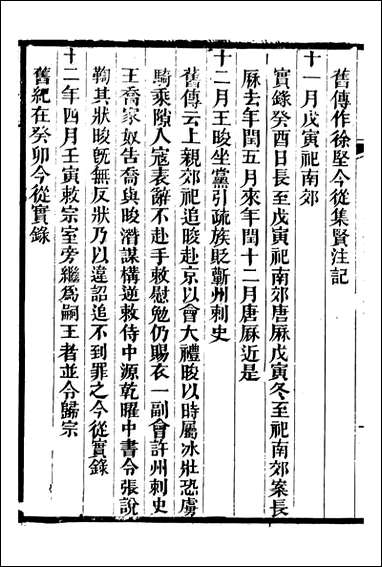 舊傳作徐堅今從集賢注記
十一月戊寅祀南郊
實錄癸酉日長至戊寅祀南郊唐厤戊寅冬至祀南郊案長
厤去年閏五月來年閏十二月唐厤近是
十二月王晙坐黨引疏族貶蘄州刺史
舊傳云上親郊祀追晙赴京以會大禮晙以時屬冰壯恐虜
騎乘隙入寇表辭不赴手敕慰勉仍賜衣一副會許州刺史
王喬家奴告喬與晙潛謀構逆敕侍中源乾曜中書令張說
鞫其狀晙旣無反狀乃以違詔追不到罪之今從實錄
十二年四月壬寅敕宗室旁繼爲嗣王者並令歸宗
舊紀在癸卯今從實錄